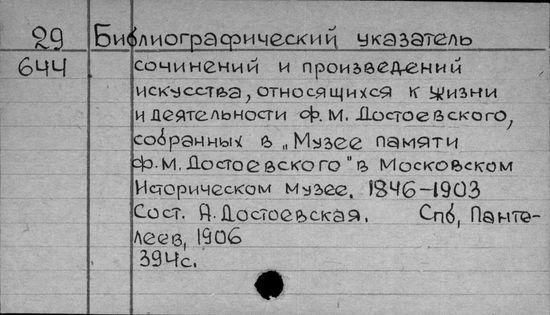 29 Библиографический указатель
644 сочинений и произведений
искусства, относящихся к жизни
и деятельности Ф. М. Достоевского,
собранных в „Музее памяти
Ф. М. Достоевского" в Московском
Историческом музее. 1846-1903
Сост. А. Достоевская. Спб, Панте-
леев, 1906
394с.